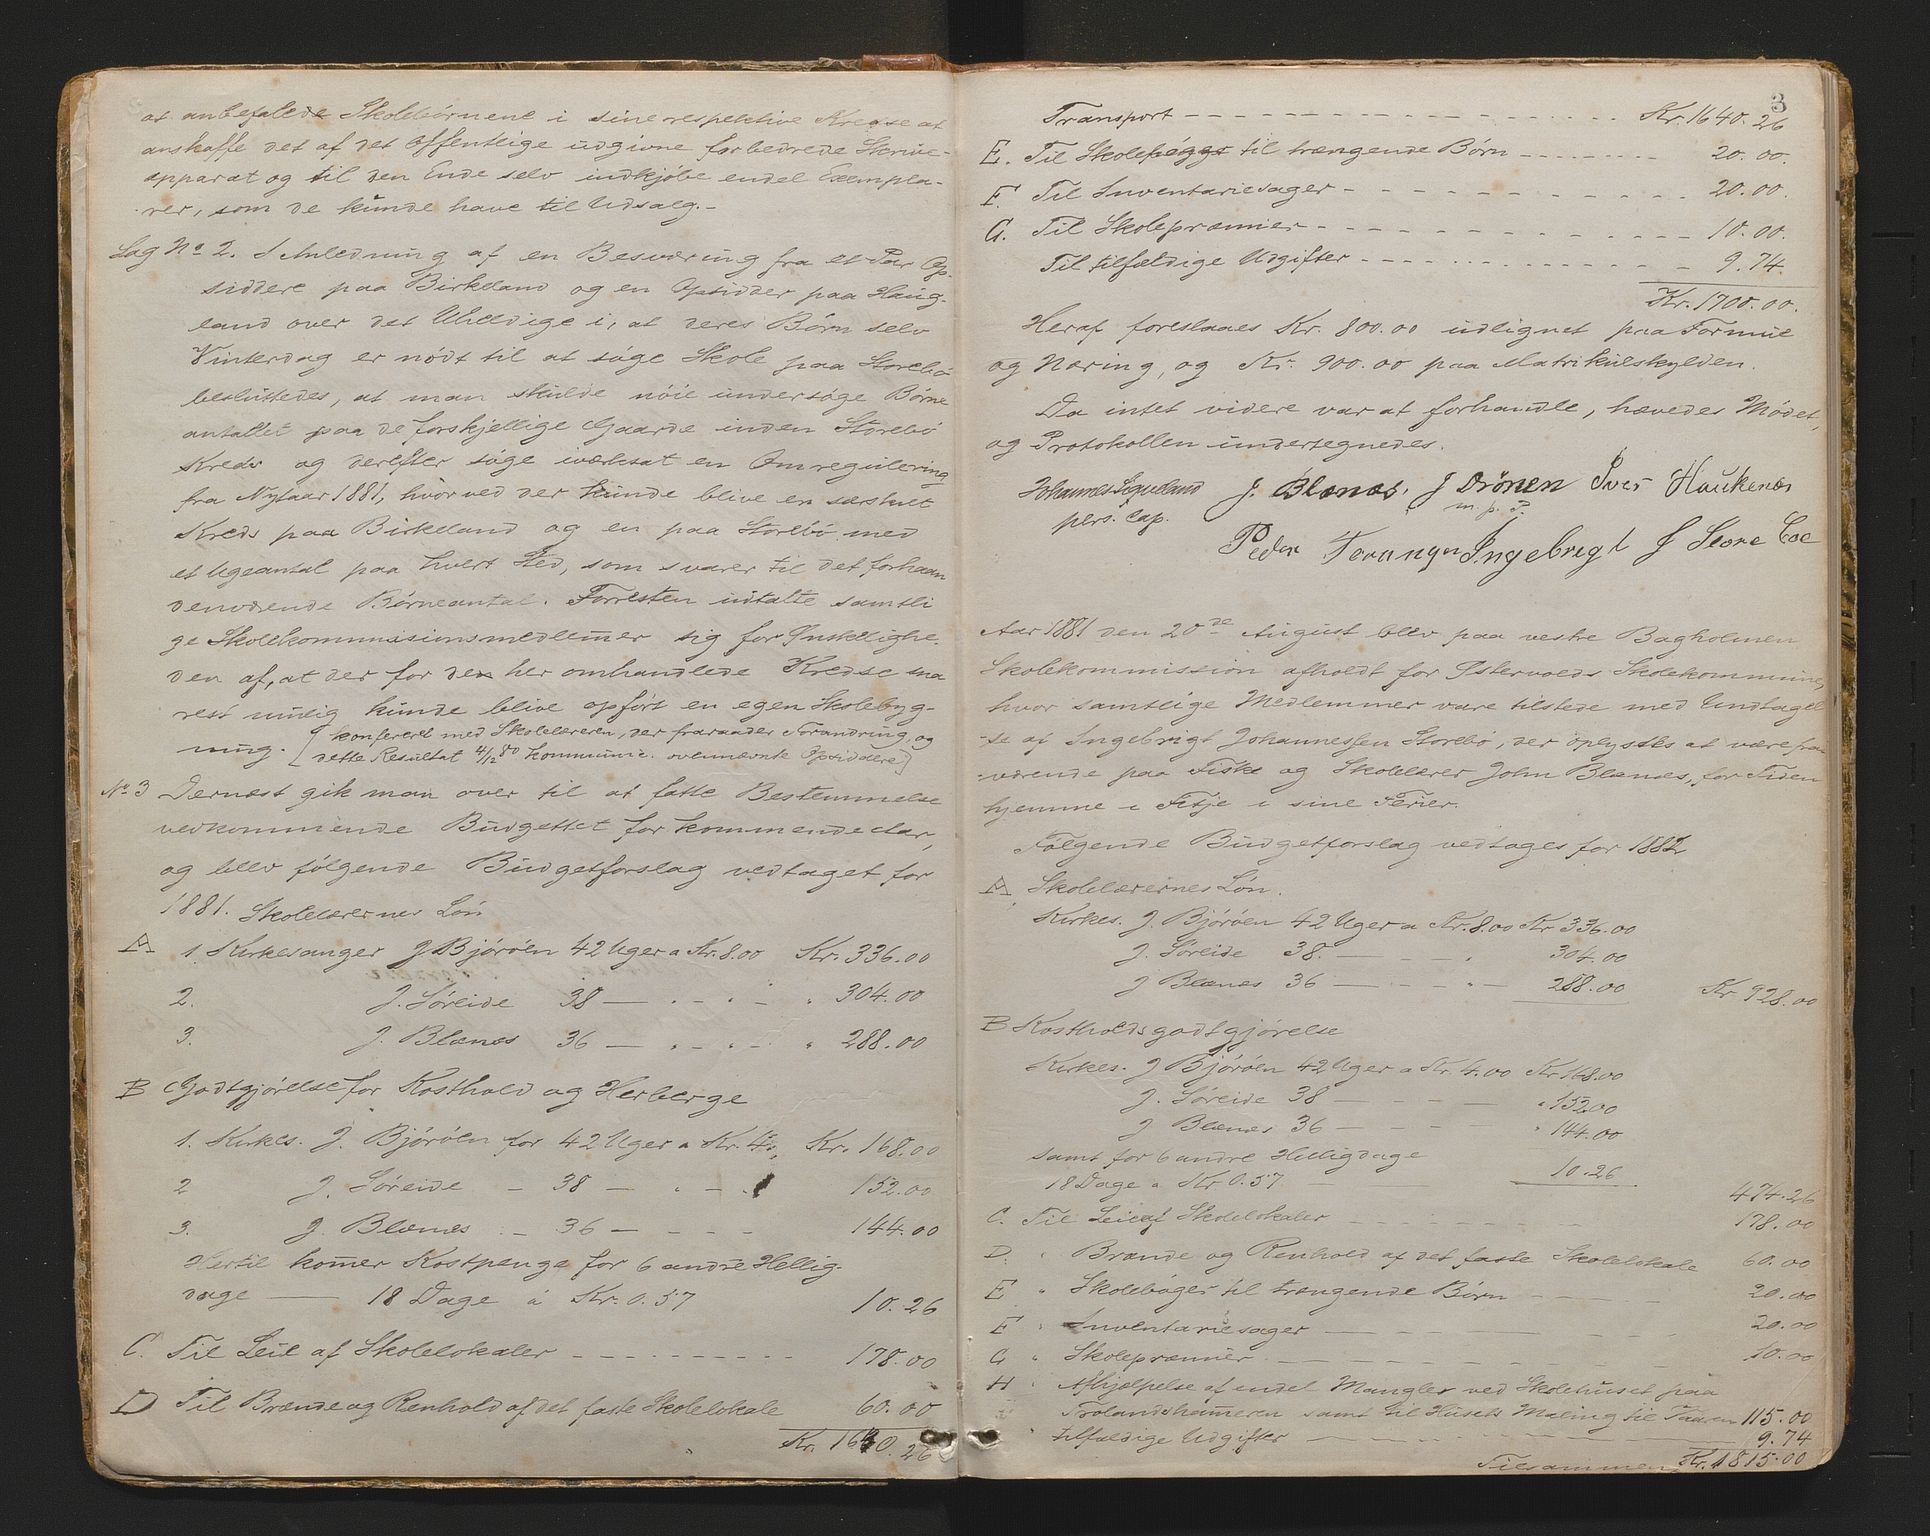 at anbefalede Skolebørnene i sine respektive Kredse at
anskaffe det af det offentlige udgivne forbedrede Skrive-
apparat og til den Ende selv indkjøbe endel Exempla-
rer, som de kunde have til Udsalg.-
Sag No 2. I Anledning af en Besværing fra et Par Op-
siddere paa Birkeland og en Opsidder paa Haug-
land over det Uheldige i, at deres Børn selv
Vinterdag er nødt til at søge Skole paa Storebø
besluttedes, at man skulde nøie undersøge Børne
antallet paa de forskjellige Gaarde inden Storebø
Kreds og derefter søge iværksat en Omregulering
fra Nytaar 1881, hvorved der kunde blive en særskilt
Kreds paa Birkeland og en paa Storebø med
et Ugeantal paa hvert Sted, som svarer til det forhaan
denværende Børneantal. Forresten udtalte samtli
ge Skolekommissionsmedlemmer sig for Ønskelighe-
den af, at der for den her omhandlede Kredse sna
rest mulig kunde blive opført en egen Skolebyg-
ning. [konfereret med Skolelæreren, der fraraader Forandring, og
dette Resultat 4/12 80 kommunic. ovennævnte Opsiddere]
No 3 Dernæst gik man over til at fatte Bestemmelse
vedkommende Budgettet for kommende Aar,
og blev følgende Budgetforslag vedtaget for
1881. Skolelærernes Løn
A 1. Kirkesanger J Bjørøen 42 Uger a Kr. 8.00 Kr. 336.00
2. J. Søreide 38 — " — " — " 304.00
3. J. Blænes 36 — " — " — " 288.00
B Godtgjørelse for Kosthold og Herberge
1. Kirkes. J. Bjørøen for 42 Uger a Kr. 4., Kr. 168.00
2 J. Søreide — 38 — " — 152.00
3. J. Blænes — 36 — - - - 144.00
Hertil kommer Kostpenge for 6 andre Hellig-
dage — 18 Dage á Kr. 0.57 10.26
C. Til Leie af Skolelokaler - - - - - - - - - 178.00
D Til Brænde og Renhold af det faste Skolelokale 60.00
Kr. 1640.26
3
Transport - - - - - - - - - - Kr. 1640.26
E. Til Skolebøger til trængende Børn - - - - - 20.00.
F. Til Inventariesager - - - - - - - - - - 20.00.
G. Til Skolepræmier - - - - - - - - - - 10.00.
Til tilfældige Udgifter - - - - - - - - - 9.74
Kr. 1700.00.
Heraf foreslaaes Kr. 800.00 udlignet paa Formue
og Næring, og Kr. 900.00 paa Matrikulskylden.
Da intet videre var at forhandle, hævedes Mødet,
og Protokollen undertegnedes.
Johannes J. Blænes, J Drönen Iver Haukenæs
pers. cap. m. p. P.
Peder Ingebrigt J Store boe
Aar 1881 den 20de August blev paa vestre Bagholmen
Skolekommission afholdt for Østervolds Skolekommune,
hvor samtlige Medlemmer vare tilstede med Undtagel-
se af Ingebrigt Johannessen Storebø, der oplystes at være fra-
værende paa Fiske og Skolelærer John Blænes, for Tiden
hjemme i Fitje i sine Ferier.
Følgende Budgetforslag vedtages for 1882
A Skolelærernes Løn.
Kirkes. J. Bjørøen 42 Uger a Kr. 8.00 Kr 336.00
J. Søreide 38. — - - " 304.00
J Blænes 36 — - - " — 288.00 Kr. 928.00
B Kostholdsgodtgjørelse
Kirkes. J Bjørøen 42 Uger a Kr. 4.00 Kr 168.00
J. Søreide 38 — - - — " 152.00
J Blænes 36 — - - — " 144.00
samt for 6 andre Helligdage
18 Dage a Kr 0.57 — 10.26
474.26
C. Til Leie af Skolelokaler - - - - - 178.00
D. " Brænde og Renhold af det faste Skolelokale 60.00
E " Skolebøger til trængende Børn - - - - 20.00
F " Inventariesager - - - - - 20.00
G " Skolepræmier - - - - - 10.00
H " Afhjælpelse af endel Mangler ved Skolehuset paa
Trolandshammeren samt til Husets Maling til 115.00
" tilfældige Udgifter — 9.74
Tilsammen Kr. 1815.00